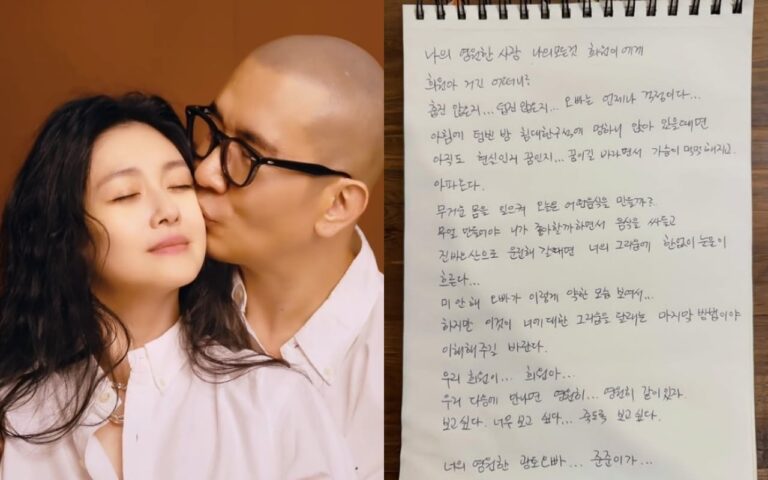 나의 영원한 사랑 나의모든것 희원이 에게
희원아 거긴 어떠니?
춥진 않은지... 덥진 않은지... 오빠는 언제나 걱정이다...
아침에 텅빈 방 침대한구석에 멍하니 앉아 있을때면
아직도 현실인지 꿈인지... 꿈이길 바라면서 가슴이 먹먹해지고
아파온다.
무거운 몸을 일으켜 오늘은 어떤음식을 만들까?
무얼 만들어야 니가 좋아할까하면서 음식을 싸들고
진바오산으로 운전해 갈때면 너의 그리움에 한없이 눈물이
흐른다...
미안해 오빠가 이렇게 약한 모습 보여서...
하지만 이것이 너에대한 그리움을 달래는 마지막 방법이야
이해해주길 바란다.
우리 희원이... 희원아...
우리 다음에 만나면 영원히... 영원히 같이있자.
보고싶다. 너무 보고 싶다... 죽도록 보고싶다.
너의 영원한 광토오빠... 준준이가...